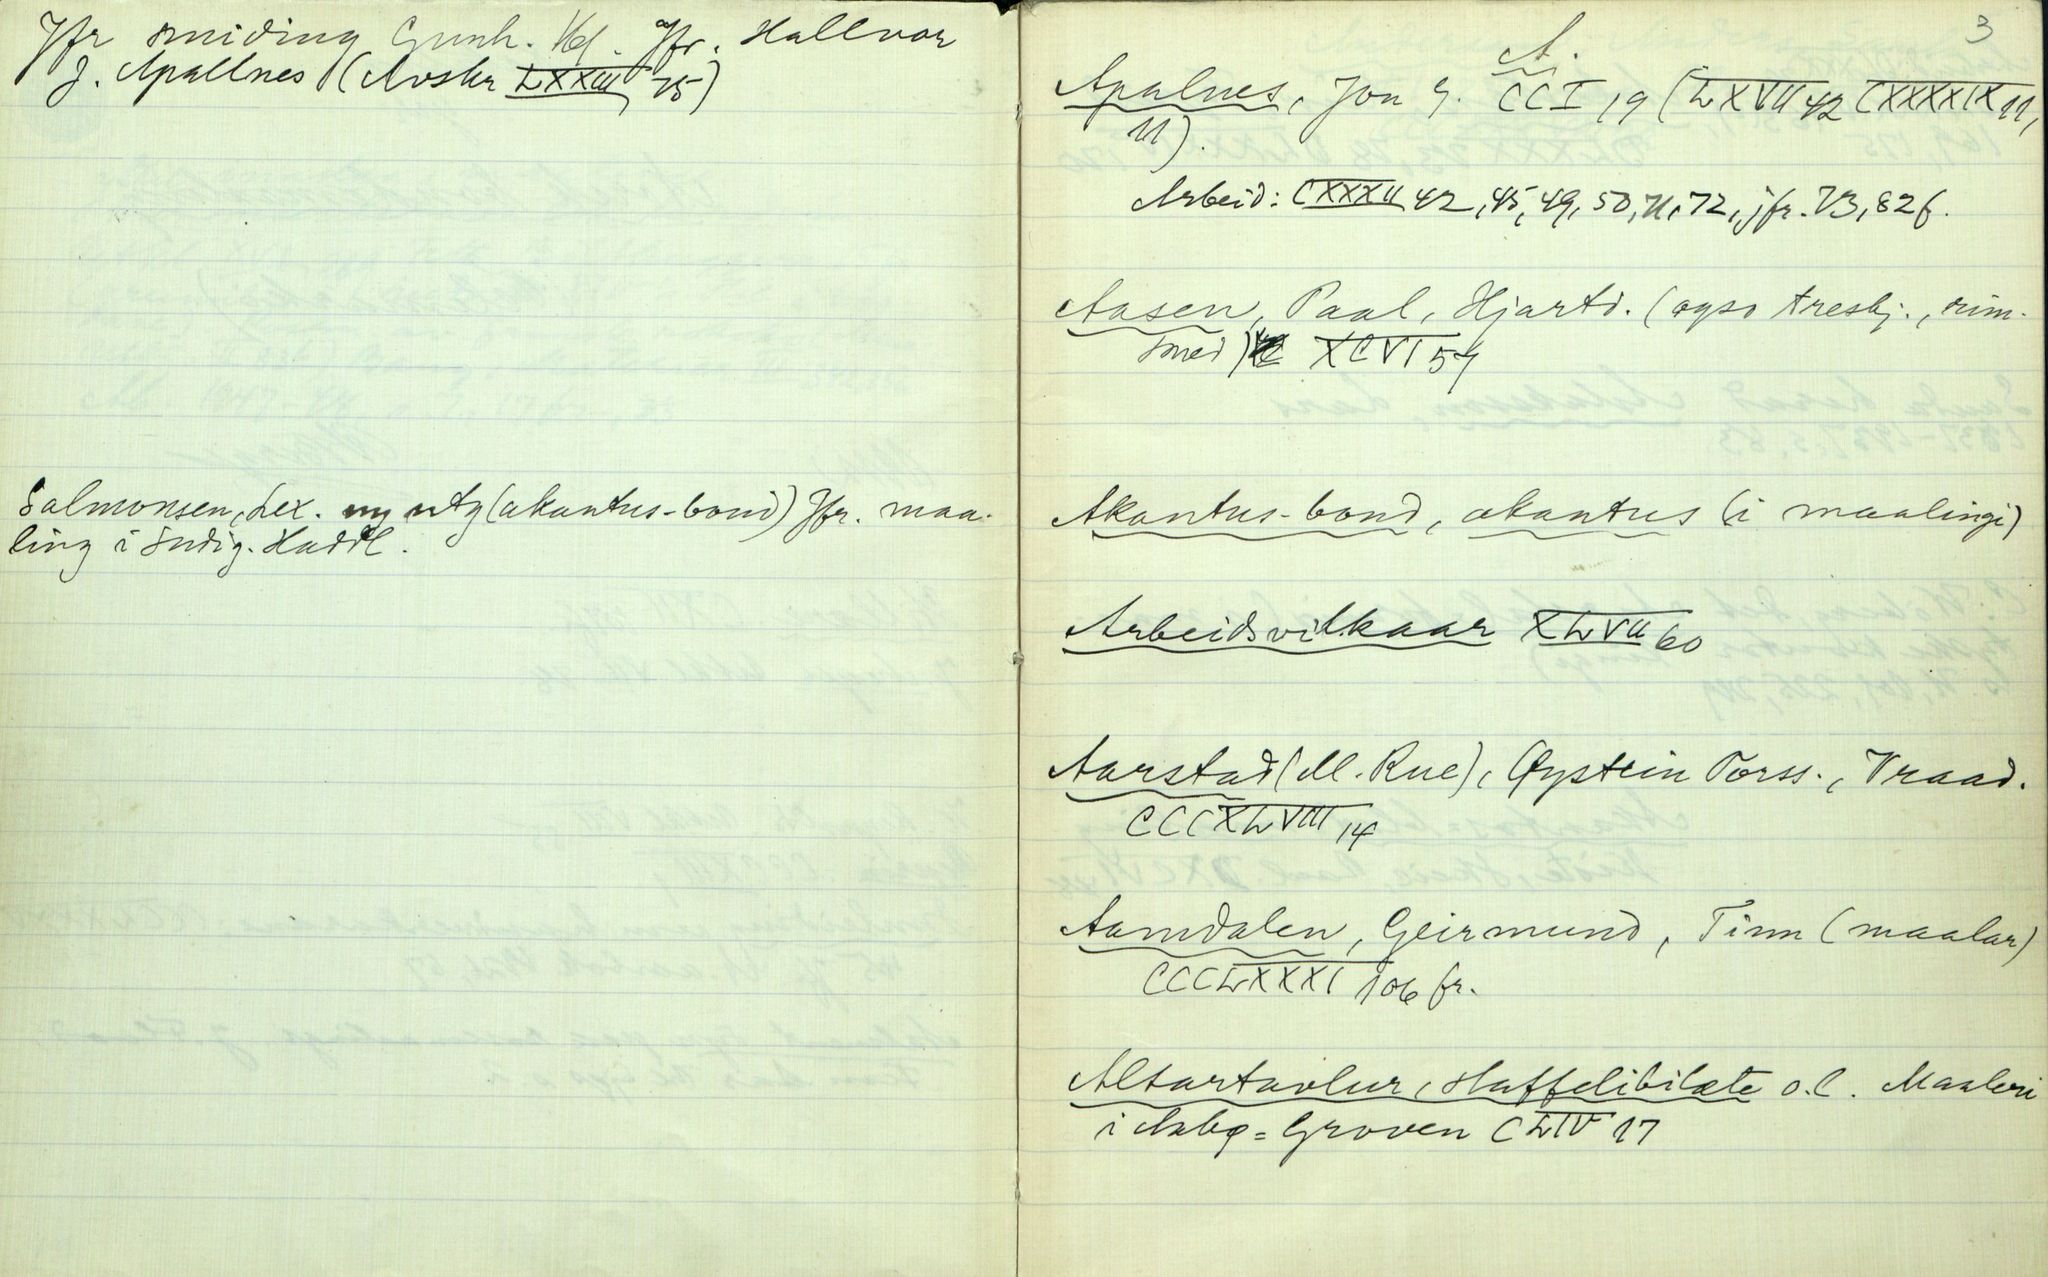 Jfr smiding Gunh. Kd. Jfr. Hallvor
J. Apallnes (Avskr LXXIII 75)
Salmonsen, Lex. ny utg (akantus-bond) Jfr. maa-
ling i Sudig. Haddl.
3
A.
Apalnes, Jon G. CCI 19 (LXVII 42 CXXXXIX 11,
11).
Arbeid: CXXXII 42, 45, 49, 50, 71, 72, jfr. 73, 82 f.
Aasen, Paal, Hjartd. (ogso treskj., rim-
smed) XCVI 54
Akantus-bond, akantus (i maalingi)
Arbeidsvilkaar XLVII 60
Aarstad (M. Rue), Øystein Torss., Vraad.
CCCXLVIII 14
Aamdalen, Geirmund, Tinn (maalar)
CCCLXXXI 106 fr.
Altartavlur, staffelibilæte o.l. Maaleri
i Aabø = Groven CLIV 17